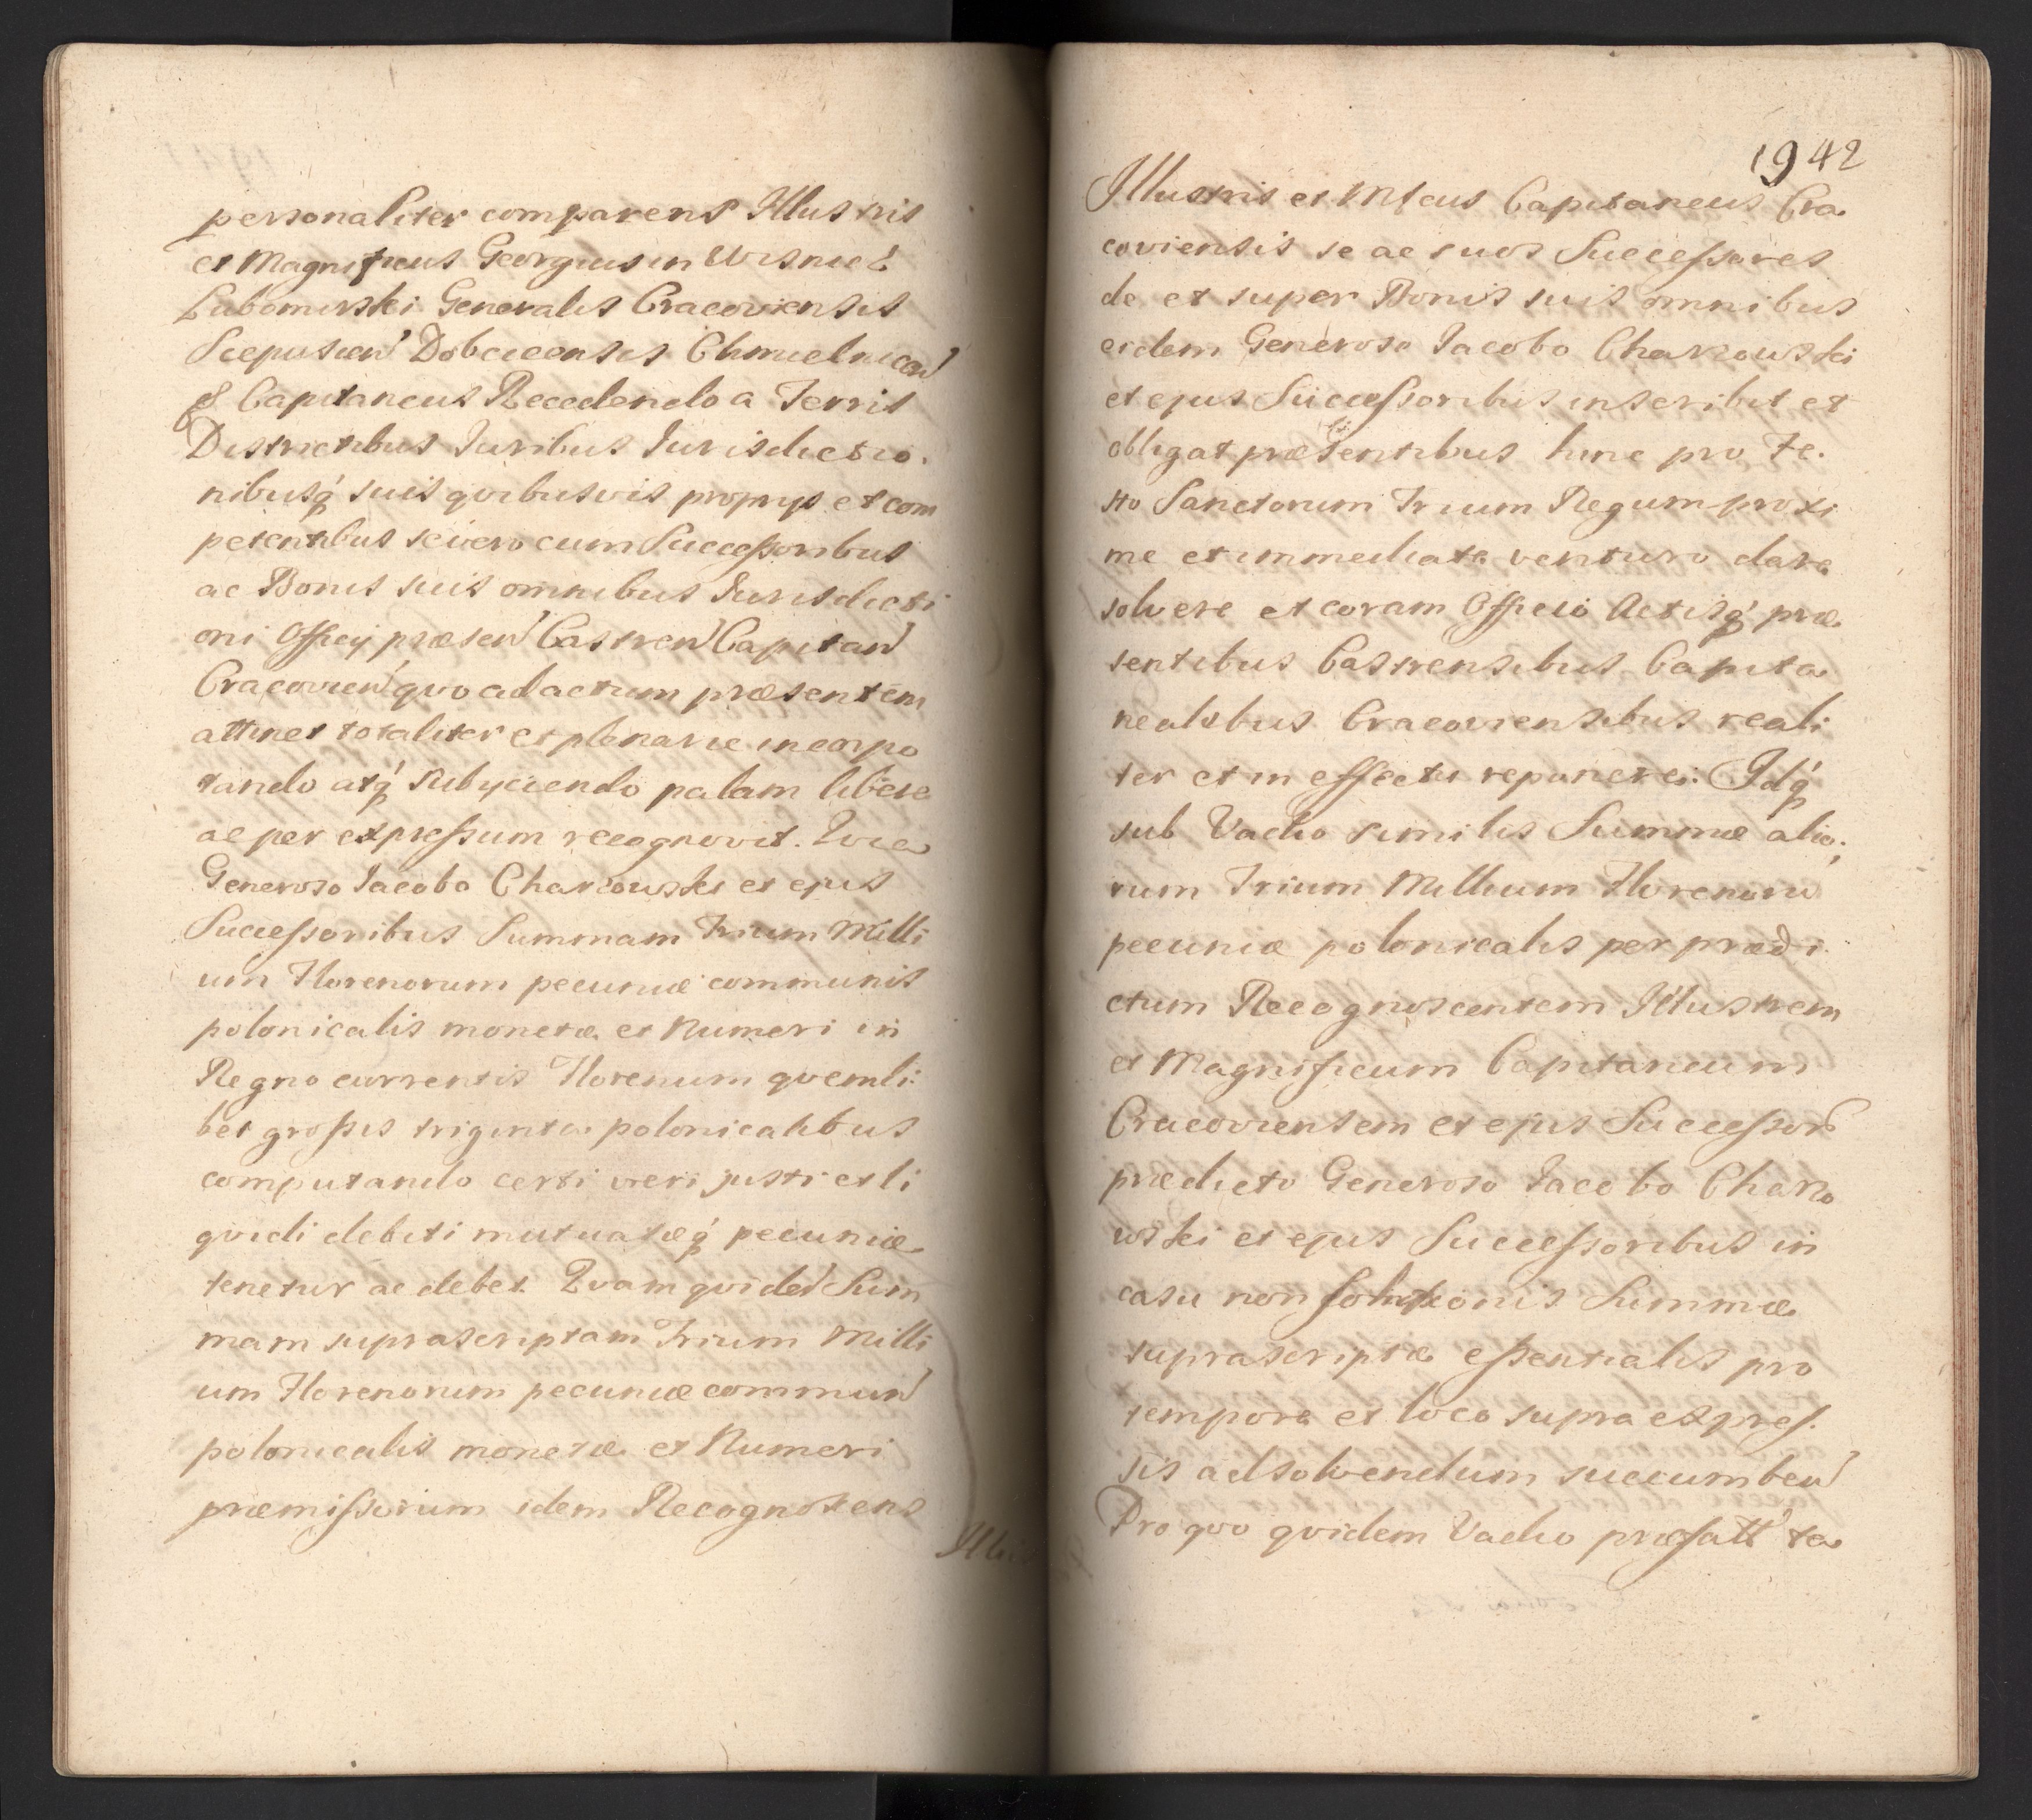 personaliter comparens Illustris
et Magnificus Georgius in Wisnicz
Lubomirski Generalis Cracoviensis
Scepusien Dobczicensis Chmielnicen
& Capitaneus Recedendo a Terris
Districtibus Iuribus Iurisdictio.
nibusq́ suis qvibusvis proprys et com
petentibus se vero cum Successoribus
ac Bonis suis omnibus Iurisdicti
oni Officij præsen Castren Capitan
Cracovien qvo ad actum præsentem
attinet totaliter et plenarie incorpo
rando atq́ subyciendo palam libere
ac per expressum recognovit. Qvia
Generoso Iacobo Charzowski et ejus
Successoribus Summam Trium Milli
um Florenorum pecuniæ communis
polonicalis monetæ et Numeri in
Regno currentis Florenum qvemli:
bet grossis triginta polonicalibus
computando certi veri justi et li
qvidi debiti mutuatæq́ pecuniæ
tenetur ac debet. Qvam qviden Sum
mam suprascriptam Trium Milli
um Florenorum pecuniæ commun
polonicalis monetæ et Numeri
præmissorum idem Recognoscens
Illu
1942
Illustris et Mfcus Capitaneus Cra
coviensis se ac suos Successores
de et super Bonis suis omnibus
eidem Generoso Iacobo Charzowski
et ejus Successoribus inscribit et
obligat præsentibus hinc pro Fe.
sto Sanctorum Trium Regum proxi
me et immediate venturo dare
solvere et coram Officio Actisq́ præ
sentibus Castrensibus Capita
nealibus Cracoviensibus reali
ter et in effectu reponere: Idq́
sub Vadio similis Summæ alio;
rum Trium Millium Florenoru
pecuniæ polonicalis per prædi
ctum Recognoscentem Illustrem
et Magnificum Capitaneum
Cracoviensem et ejus Successor
prædicto Generoso Iacobo Charzo
wski et ejus Successoribus in
casu non solutionis Summæ
suprascriptæ essentialis pro
tempore et loco supra expres.
sis ad solvendum succumben
Pro qvo qvidem Vadio præfatt ta